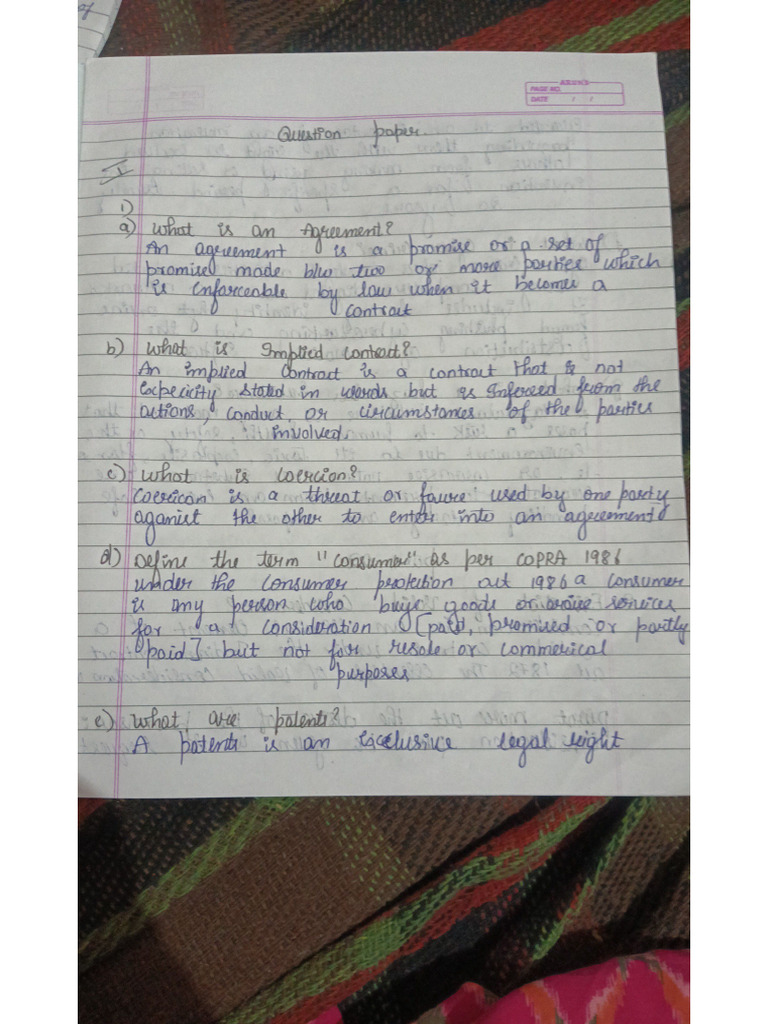 PAGE NO.
DATE / /
Question paper.
I
1)
a) What is an Agreement?
An agreement is a promise or a set of
promise made b/w two or more parties which
is enforceable by law when it becomes a
contract
b) What is Implied contract?
An implied contract is a contract that is not
expecicity stated in words but is Inferred from the
actions, conduct, or circumstances of the parties
involved.
c) What is Coercion?
Coericon is a threat or faure used by one party
aganist the other to enter into an agreement
d) Define the term "Consumer" as per COPRA 1986
under the Consumer protection act 1986 a consumer
is any person who buys goods or services
for a consideration [paid, promised or partly
paid] but not for resale or commerical
purposes
e) What are patents?
A patents is an Exclusive legal right